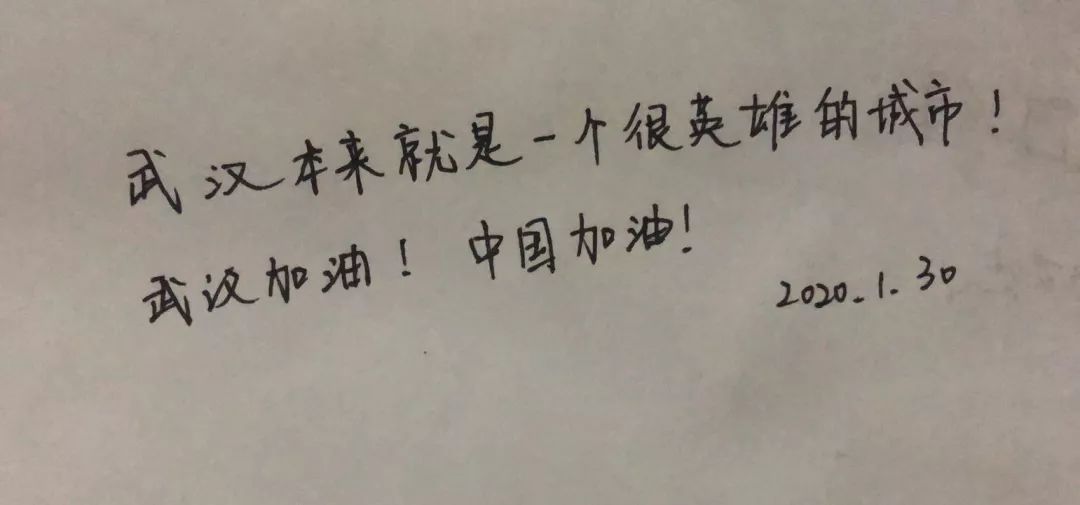 武汉本来就是一个很英雄的城市！
武汉加油！中国加油！
2020.1.30